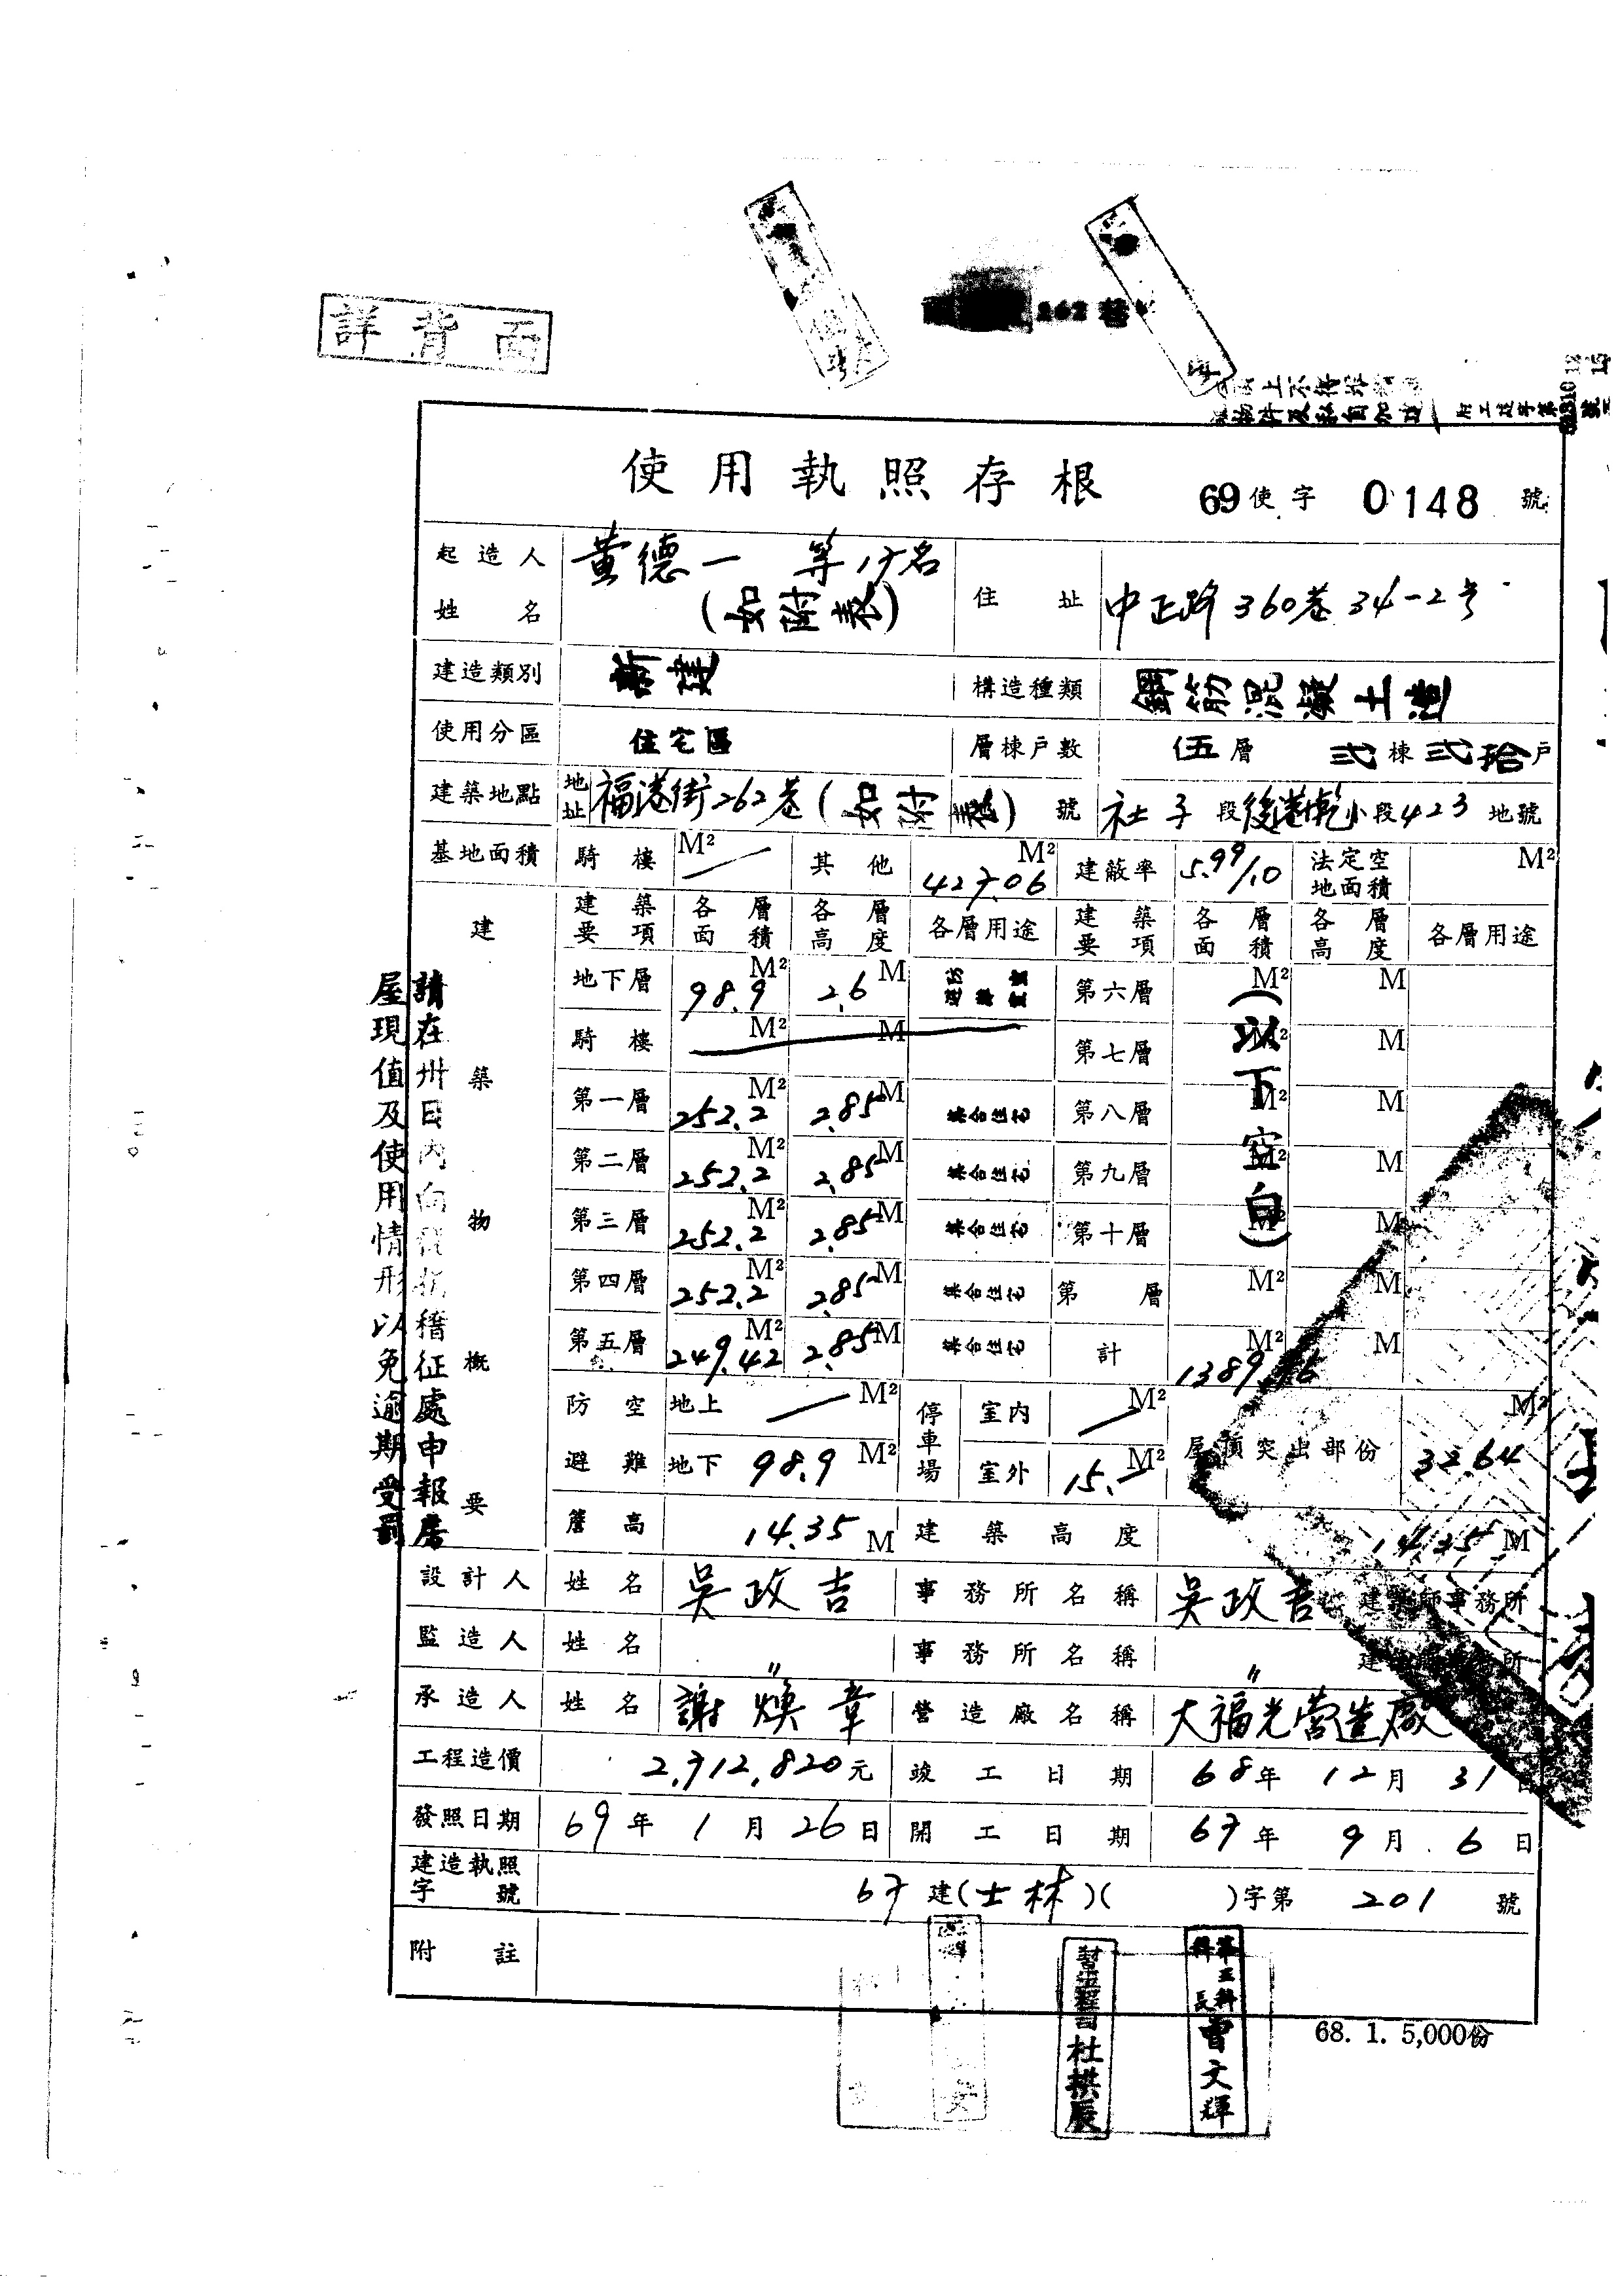 詳背面
262巷
使用執照存根 69使字 0148 號
起造人姓名 黃德一 等17名 (如附表) 住址 中正路360巷34-2号
建造類別 新建 構造種類 鋼筋混凝土造
使用分區 住宅區 層棟戶數 伍層 弍棟弍拾戶
建築地點 地址 福港街262巷(如附表) 號 社子段後港乾小段423地號
基地面積 騎樓 M² 其他 427.06 M² 建蔽率 5.99/10 法定空地面積 M²
建築物概要
建築要項 各層面積 各層高度 各層用途 建築要項 各層面積 各層高度 各層用途
地下層 98.9 M² 2.6 M 第六層 M² M
騎樓 M² M 第七層 M² M
第一層 252.2 M² 2.85 M 集合住宅 第八層 M² M
第二層 252.2 M² 2.85 M 集合住宅 第九層 M² M
第三層 252.2 M² 2.85 M 集合住宅 第十層 M² M
第四層 252.2 M² 2.85 M 集合住宅 第 層 M² M
第五層 249.42 M² 2.85 M 集合住宅 計 M² M
(以下空白)
防空避難 地上 M² 停車場 室內 M² 屋頂突出部份 32.64 M²
地下 98.9 M² 室外 15.- M²
簷高 14.35 M 建築高度 M
設計人 姓名 吳政吉 事務所名稱 吳政吉 建築師事務所
監造人 姓名 〃 事務所名稱 〃
承造人 姓名 謝煥章 營造廠名稱 大福光營造廠
工程造價 2,712,820元 竣工日期 68年12月31日
發照日期 69年1月26日 開工日期 67年9月6日
建造執照字號 67建(士林)( )字第 201 號
附註
請在卅日內向 稽征處申報房
屋現值及使用情形以免逾期受罰
杜拱辰
第三科科長 曾文輝
68. 1. 5,000份